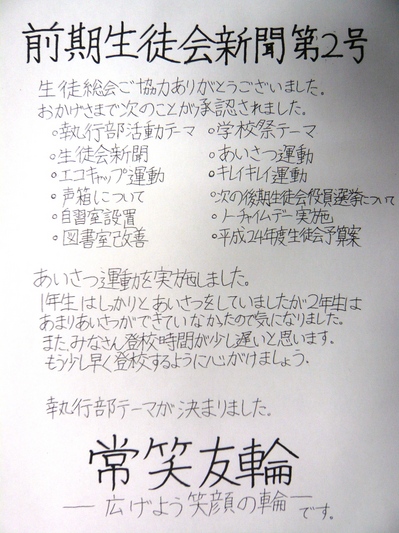 前期生徒会新聞第2号
生徒総会ご協力ありがとうございました。
おかげさまで次のことが承認されました。
◦執行部活動テーマ ◦学校祭テーマ
◦生徒会新聞 ◦あいさつ運動
◦エコキャップ運動 ◦キレイキレイ運動
◦声箱について ◦次の後期生徒会役員選挙について
◦自習室設置 ◦ノーチャイムデー実施
◦図書室改善 ◦平成24年度生徒会予算案
あいさつ運動を実施しました。
1年生はしっかりとあいさつをしていましたが2年生は
あまりあいさつができていなかったので気になりました。
また、みなさん登校時間が少し遅いと思います。
もう少し早く登校するように心がけましょう。
執行部テーマが決まりました。
常笑友輪
― 広げよう笑顔の輪 ― です。